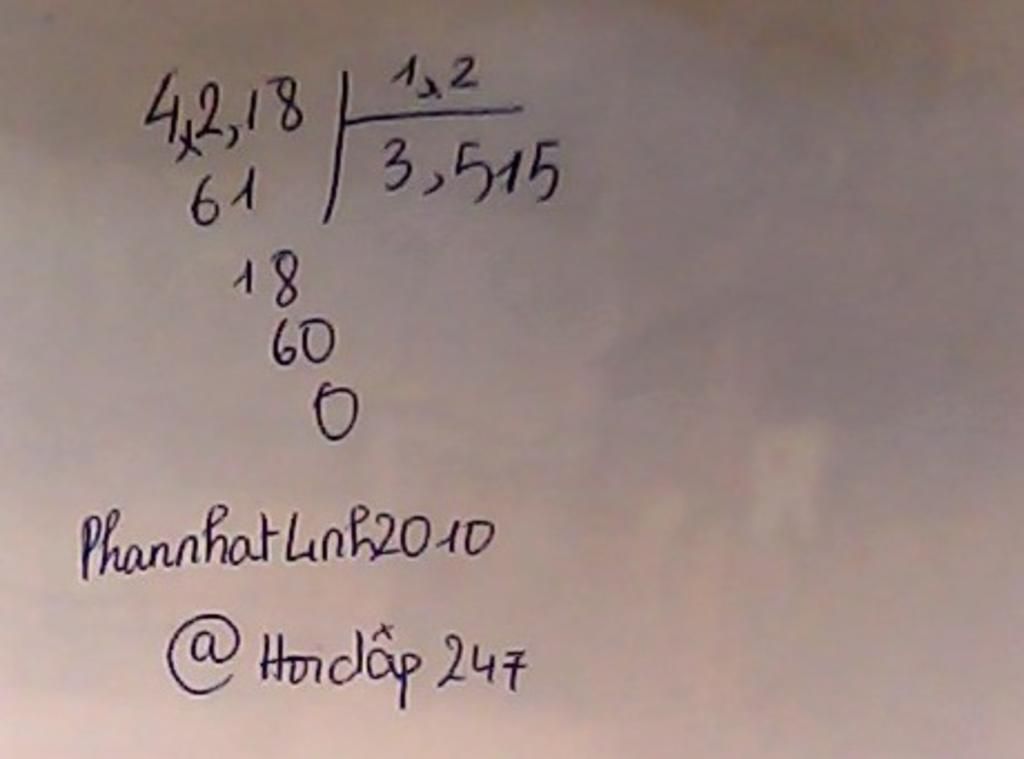 4,2,18 | 1,2
61 | 3,515
18
60
0
PhannhatLinh2010
@ Hoidấp 247